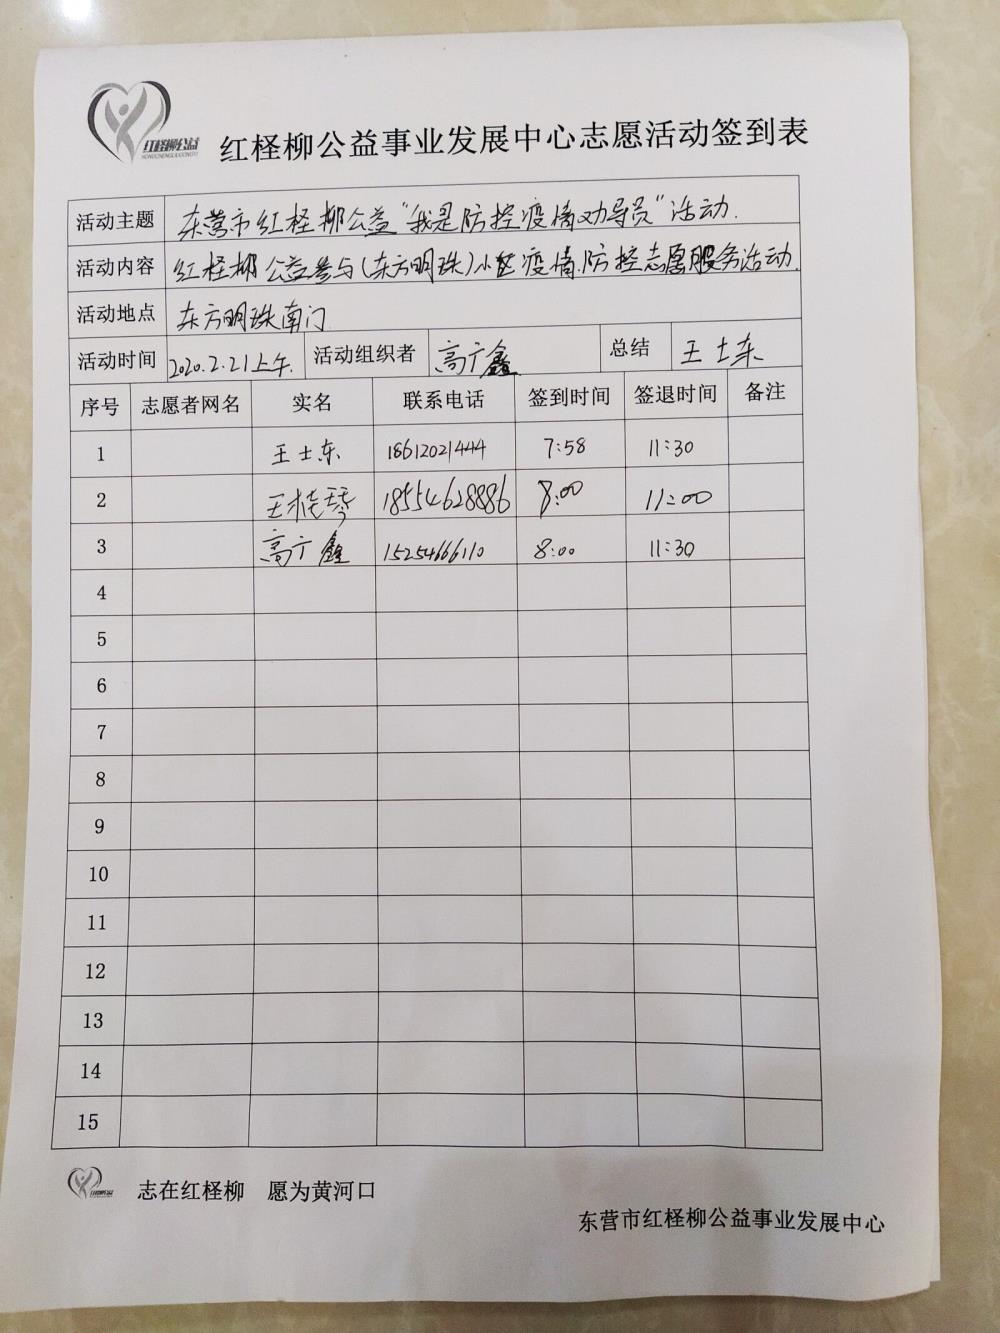 红柽柳公益
HONGCHENGLIUGONGYI
红柽柳公益事业发展中心志愿活动签到表
活动主题 东营市红柽柳公益“我是防控疫情劝导员”活动.
活动内容 红柽柳公益参与(东方明珠)小区疫情防控志愿服务活动.
活动地点 东方明珠南门
活动时间 2020.2.21上午. 活动组织者 高广鑫 总结 王士东
序号 志愿者网名 实名 联系电话 签到时间 签退时间 备注
1 王士东 18612021444 7:58 11:30
2 王桂琴 18554628886 8:00 11:00
3 高广鑫 15254666110 8:00 11:30
4
5
6
7
8
9
10
11
12
13
14
15
红柽柳公益
志在红柽柳 愿为黄河口
东营市红柽柳公益事业发展中心